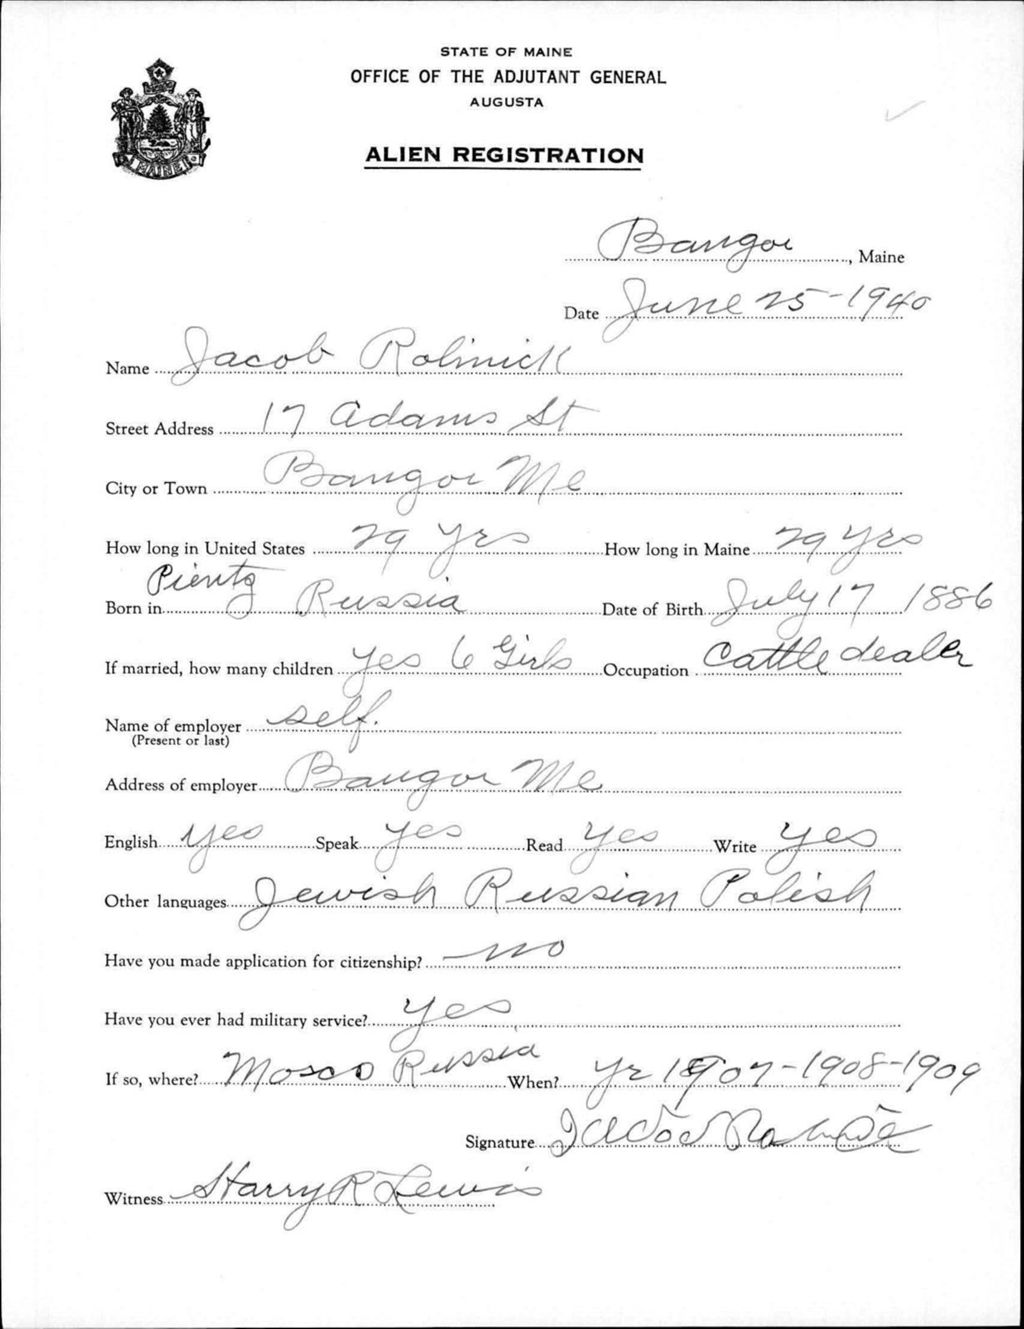 STATE OF MAINE
OFFICE OF THE ADJUTANT GENERAL
AUGUSTA
ALIEN REGISTRATION
MAINE
Bangor, Maine
Date June 25-1940
Name Jacob Rolnick
Street Address 17 Adams St
City or Town Bangor Me
How long in United States 29 yrs How long in Maine 29 yrs
Born in Russia Date of Birth July 17 1886
If married, how many children yes 6 Girls Occupation Cattle dealer
Name of employer self.
(Present or last)
Address of employer Bangor Me
English yes Speak yes Read yes Write yes
Other languages Jewish Russian Polish
Have you made application for citizenship? no
Have you ever had military service? yes
If so, where? Mosco Russia When? yr 1907-1908-1909
Signature
Witness Harry R Lewis